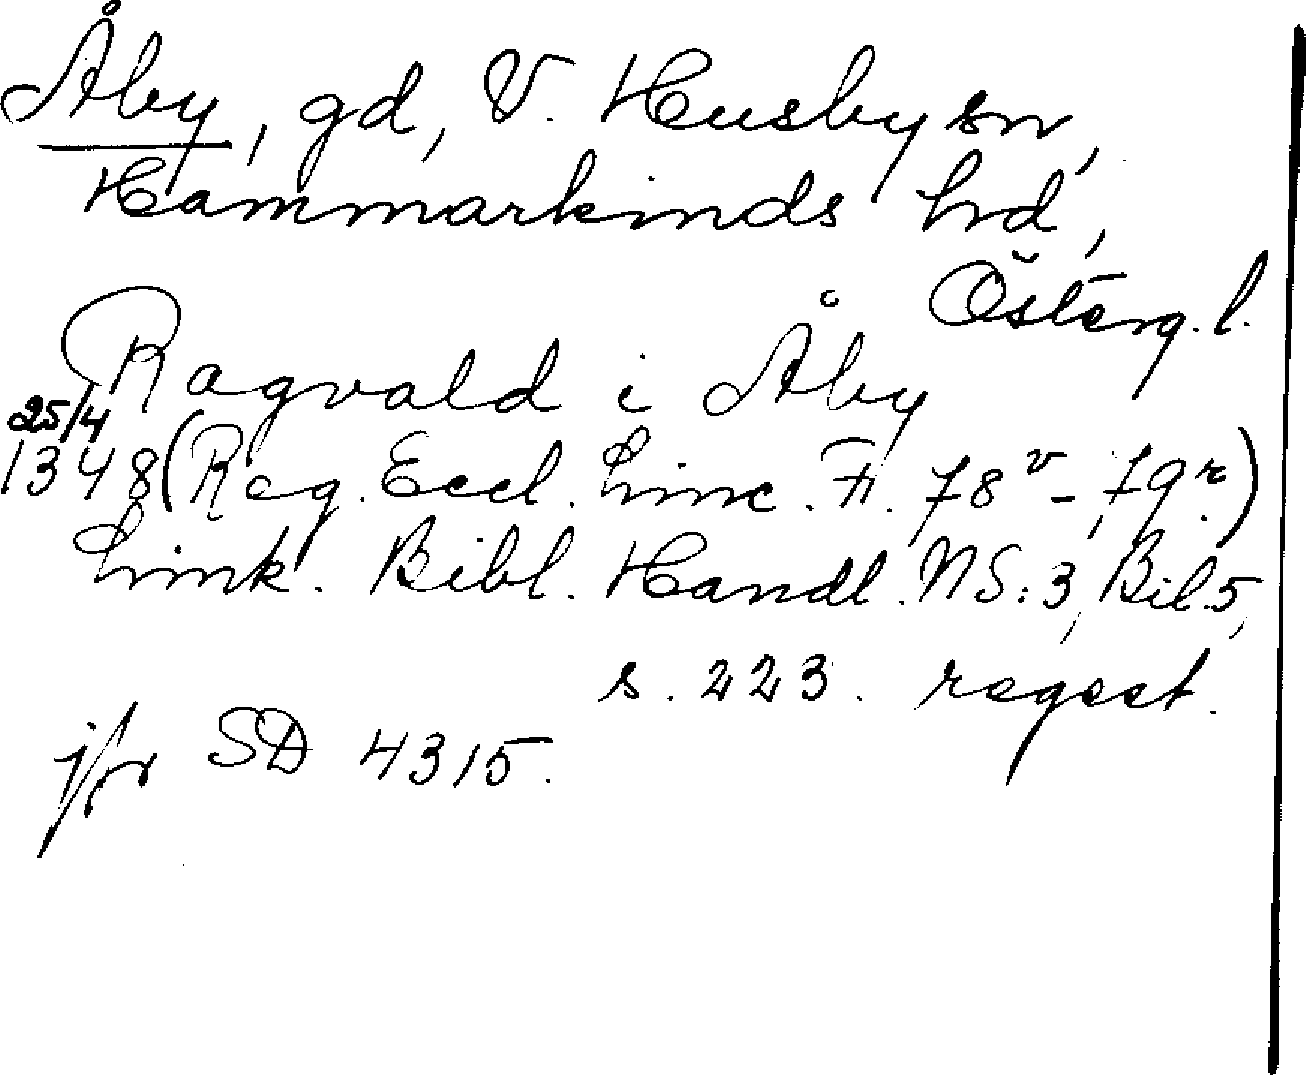 Åby, gd, V. Husby sn,
Hammarkinds hd,
Österg. l.
Ragvald i Åby
25/4
1348 (Reg. Eccl. Linc. Fi. 78v - 79r)
Link. Bibl. Handl. NS: 3, Bil. 5,
s. 223. regest.
jfr SD 4315.